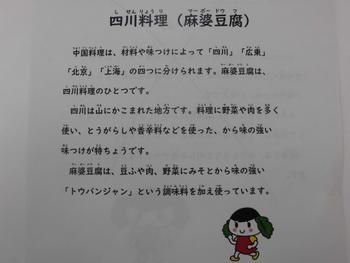 四川料理（麻婆豆腐）
中国料理は、材料や味つけによって「四川」「広東」
「北京」「上海」の四つに分けられます。麻婆豆腐は、
四川料理のひとつです。
四川は山にかこまれた地方です。料理に野菜や肉を多く
使い、とうがらしや香辛料などを使った、から味の強い
味つけが特ちょうです。
麻婆豆腐は、豆ふや肉、野菜にみそとから味の強い
「トウバンジャン」という調味料を加え使っています。